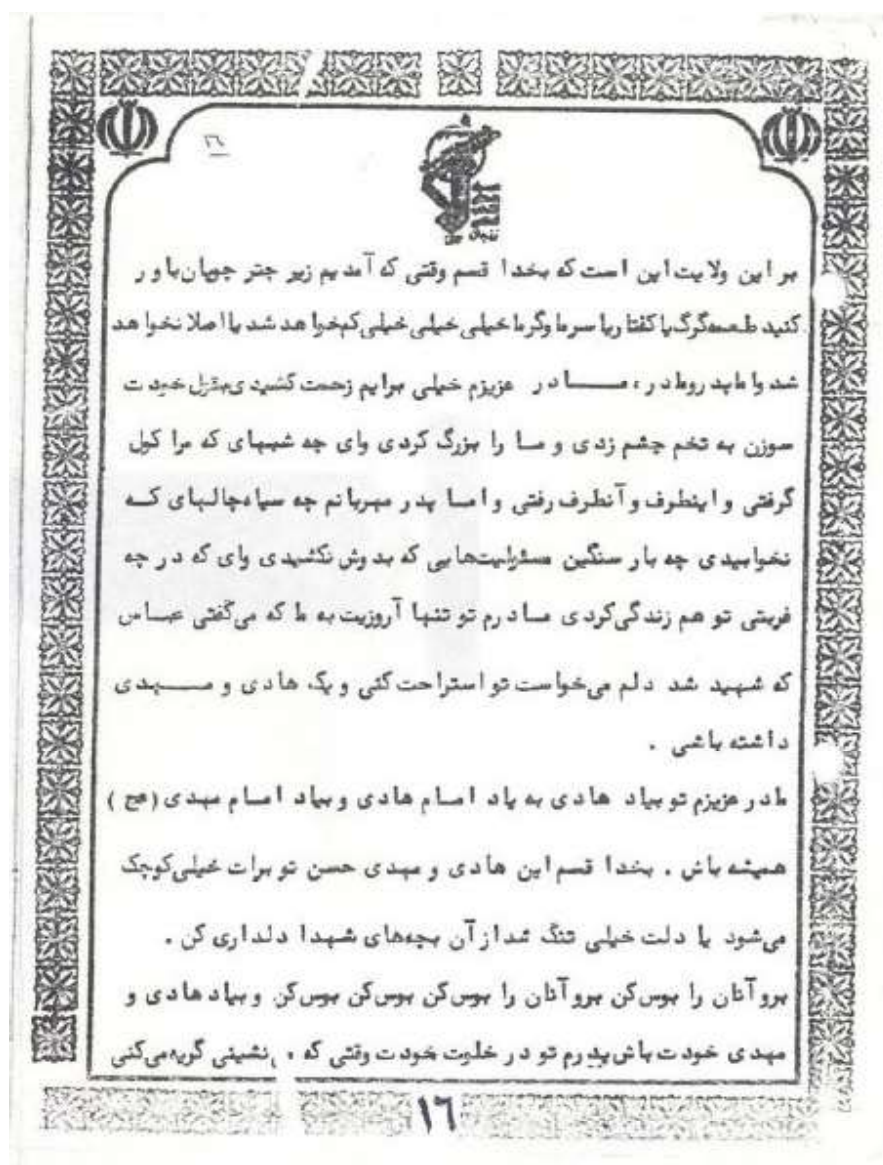 ۱۶
بر این ولایت این است که بخدا قسم وقتی که آمدیم زیر چتر چوپان باور
کنید طعمه گرگ یا کفتار یا سرما و گرما خیلی خیلی خیلی کم خواهد شد یا اصلا نخواهد
شد و اما پدر و مادر ، مـــــادر عزیزم خیلی برایم زحمت کشیدی بقول خودت
سوزن به تخم چشم زدی و ما را بزرگ کردی وای چه شبهای که مرا کول
گرفتی و اینطرف و آنطرف رفتی و اما پدر مهربانم چه سیاه چالهای کــه
نخوابیدی چه بار سنگین مسئولیتهایی که بدوش نکشیدی وای که در چه
غربتی تو هم زندگی کردی مادرم تو تنها آروزیت به ما که می‌گفتی عباس
که شهید شد دلم می‌خواست تو استراحت کنی و یک هادی و مـــهدی
داشته باشی .
مادر عزیزم تو بیاد هادی به یاد امام هادی و بیاد امام مهدی (عج )
همیشه باش . بخدا قسم این هادی و مهدی حسن تو برات خیلی کوچک
می‌شود یا دلت خیلی تنگ شد از آن بچه‌های شهدا دلداری کن .
برو آنان را بوس کن برو آنان را بوس کن بوس کن بوس کن و بیاد هادی و
مهدی خودت باش پدرم تو در خلوت خودت وقتی که نشینی گریه می‌کنی
۱۶